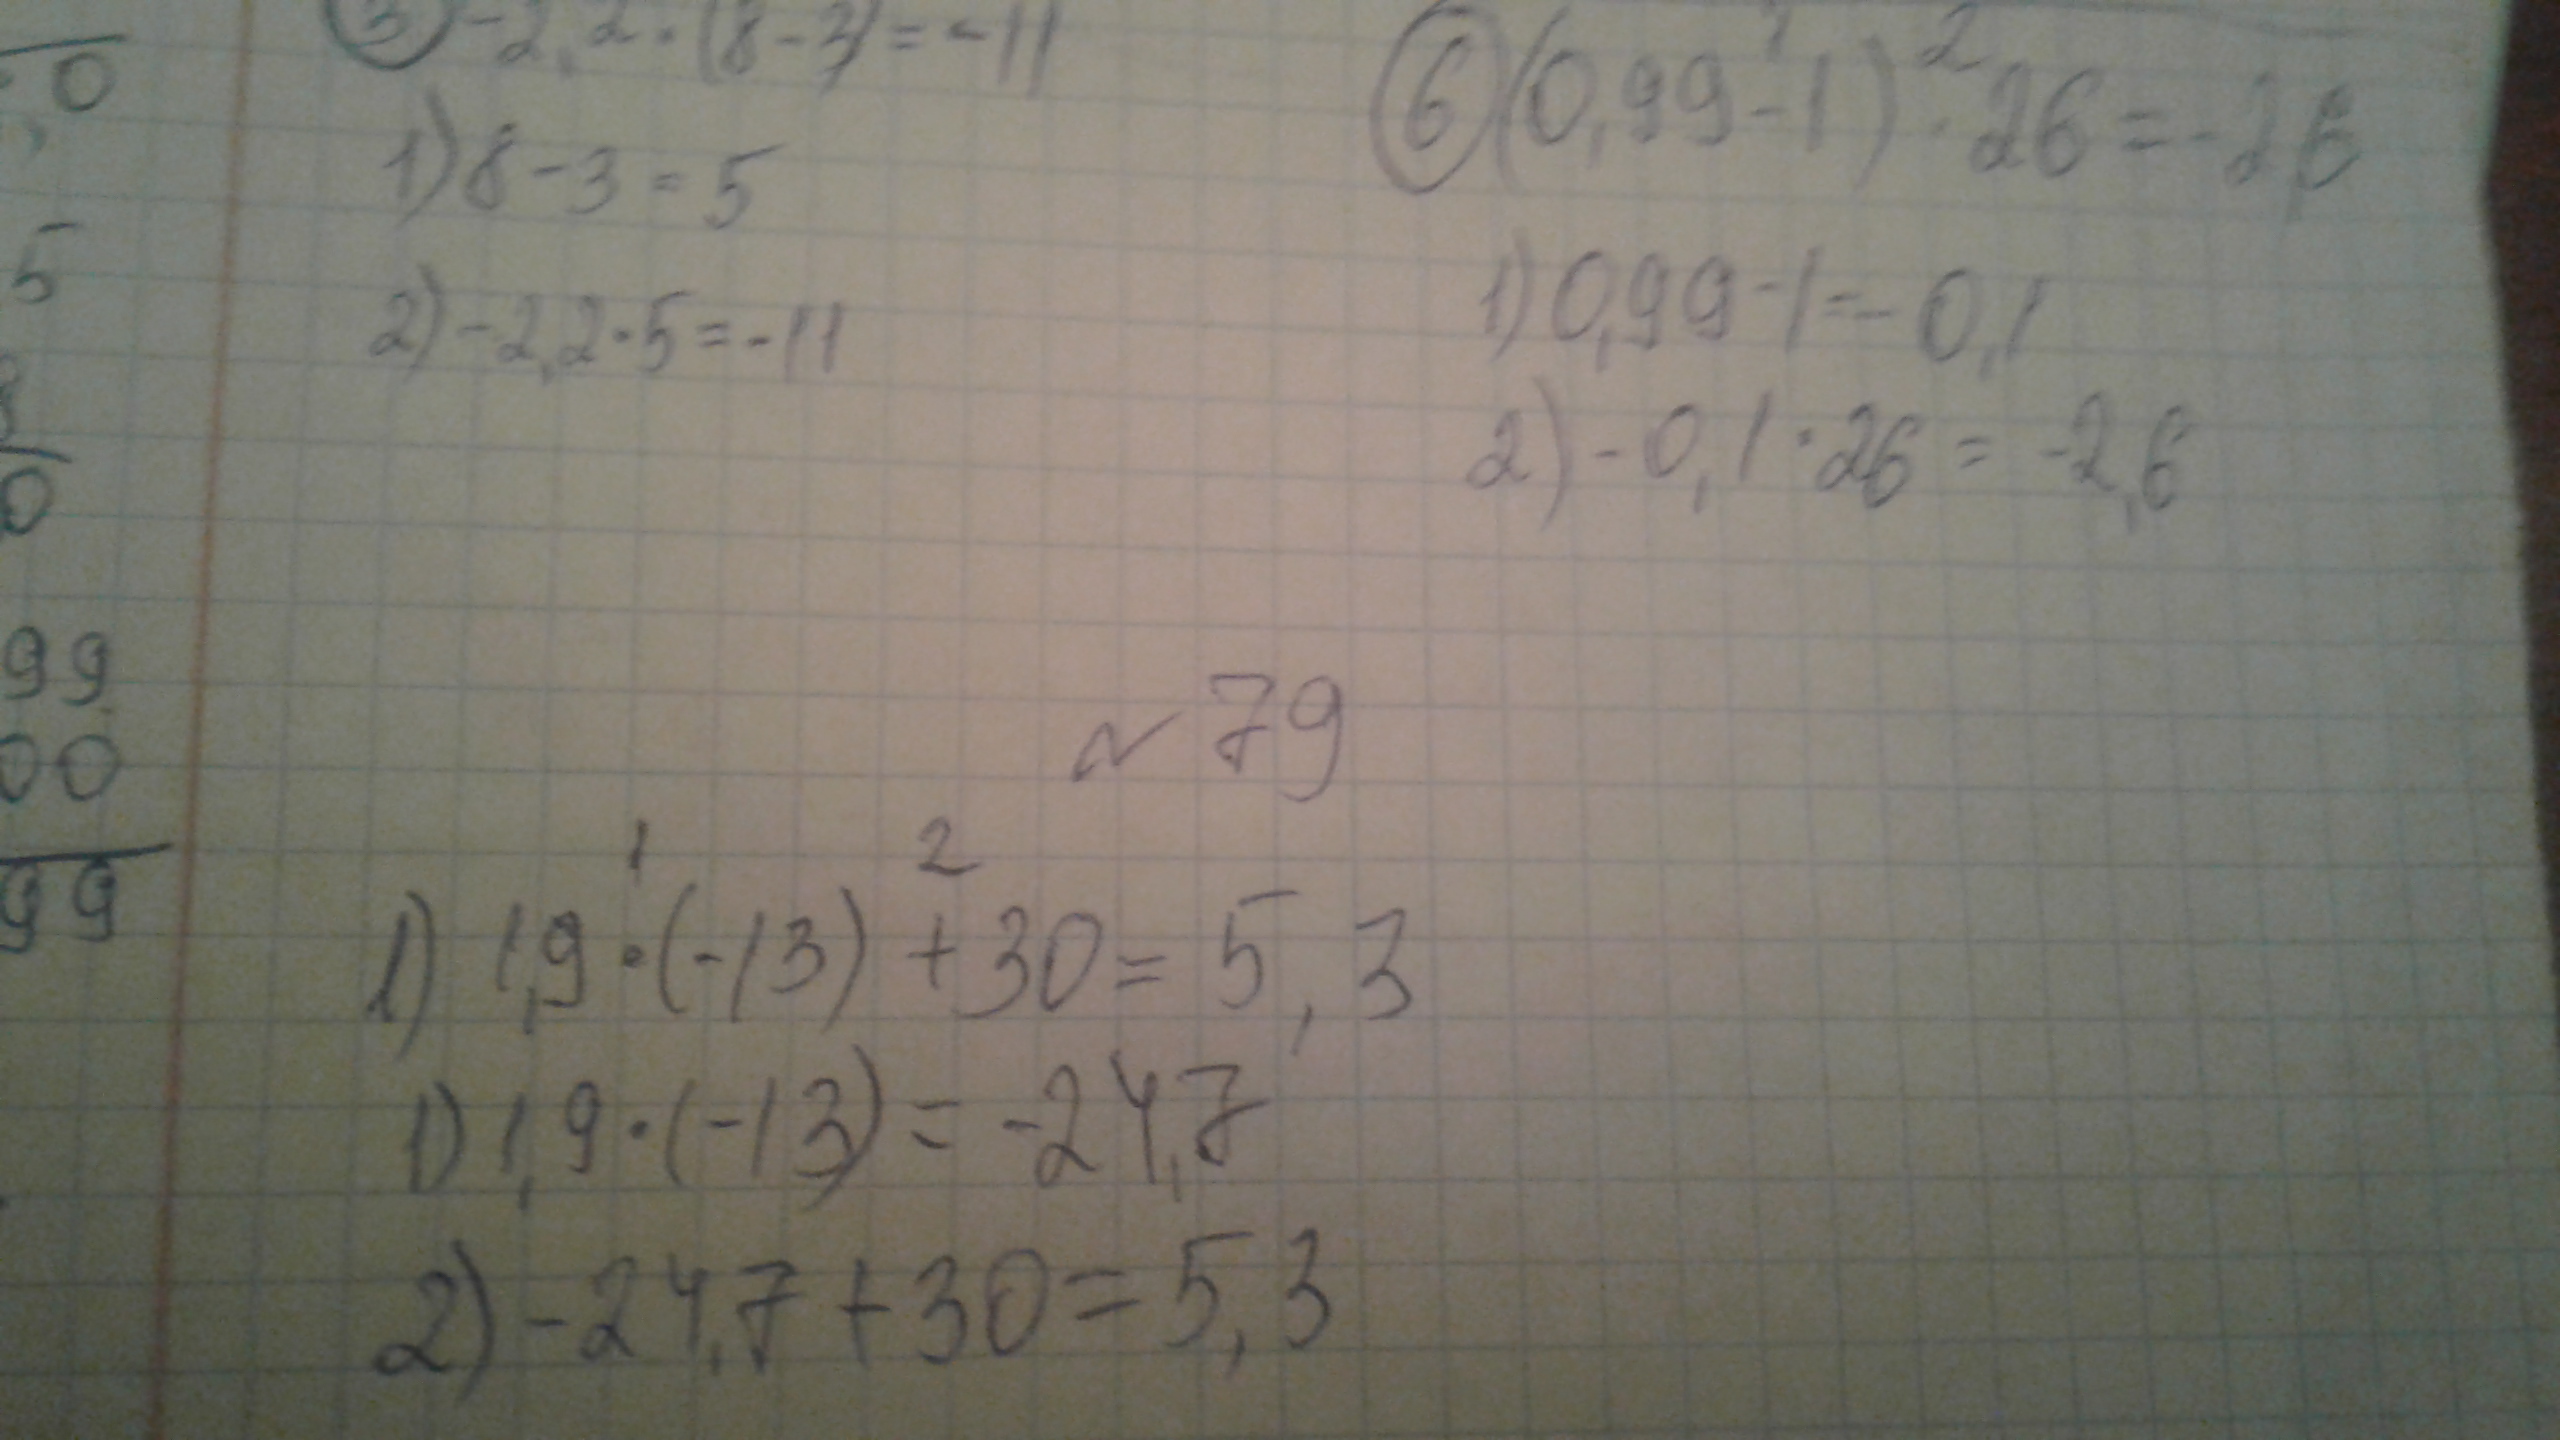 ③ -2,2·(8-3)=-11
1) 8-3=5
2) -2,2·5=-11
1 2
⑥ (0,99-1)·26=-2,6
1) 0,99-1=-0,1
2) -0,1·26=-2,6
№79
1 2
1) 1,9·(-13)+30=5,3
1) 1,9·(-13)=-24,7
2) -24,7+30=5,3
0
0
5
0
99
00
99